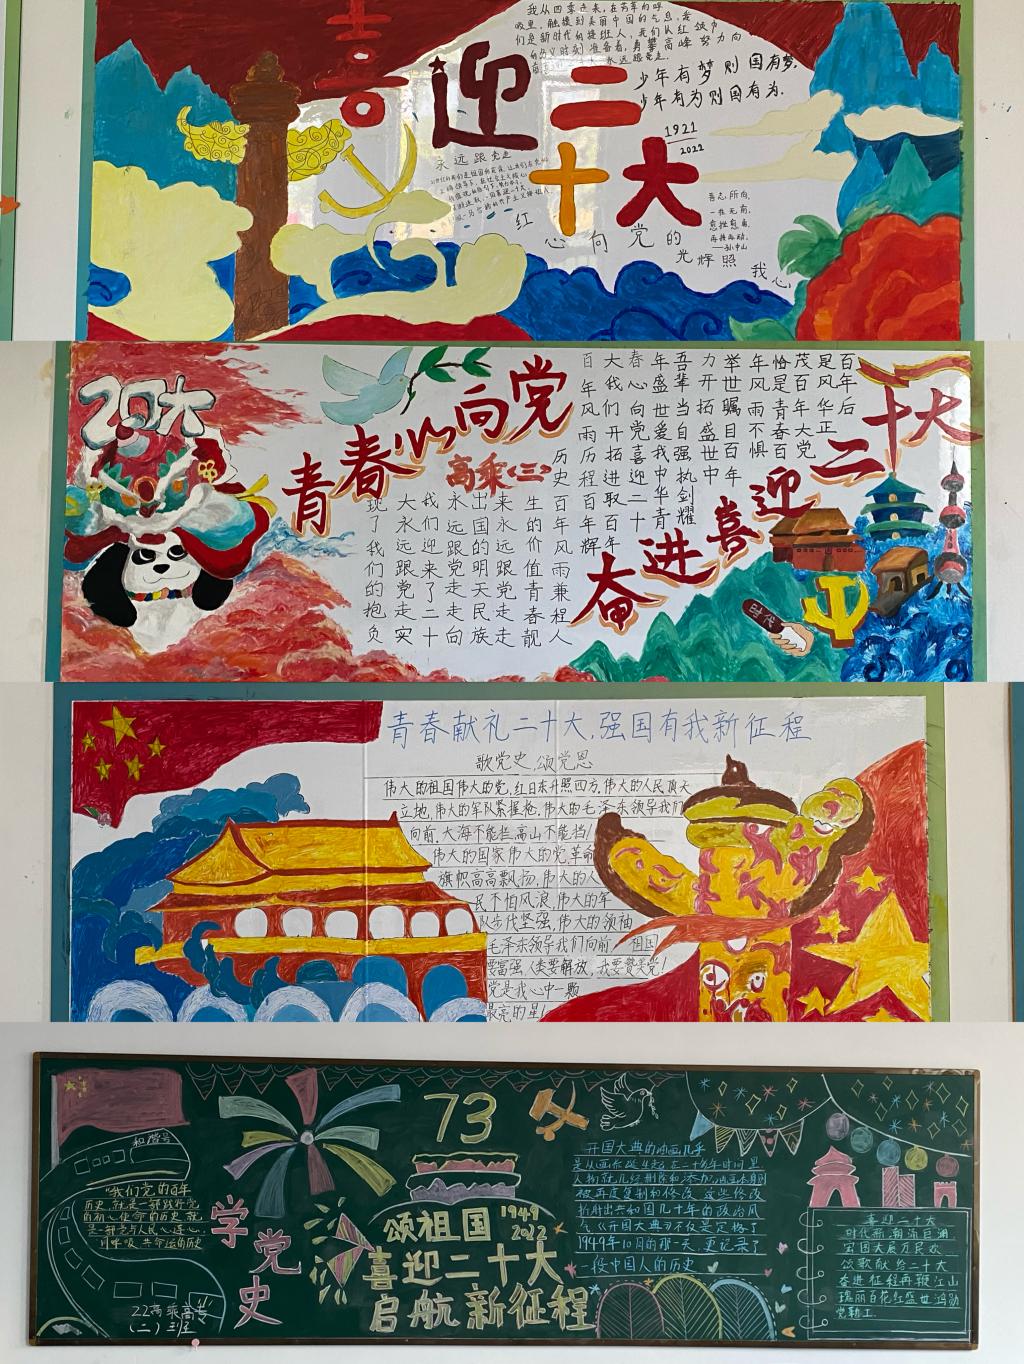 我从四季走来,在芳草的呼
吸里,触摸到美丽中国的气息,我
们是新时代的接班人,我们从红领巾
永远跟党走
喜
迎二十大
少年有梦则国有梦,
少年有为则国有为.
1921
2022
永远跟党走
吾志所向,
一往无前,
愈挫愈勇,
再接再励,
—孙中山
红心向党的光辉照我心
20大
青春心向党
高乘(三)
奋进喜迎二十大
百年后
是风华正
茂百年大党
恰是青春百
年风雨不惧
举世瞩目百年
力开拓盛世中
吾辈当自强执剑耀
年盛世爱我中华青
春心向党喜迎二十
大我们开拓进取
百年风雨历程百年辉
历史
百年风雨兼程人
生的价值青春靓
来永远跟党走
出国的明天民族
永远跟党走走向
我们迎来了二十
大永远跟党走实
现了我们的抱负
时代
青春献礼二十大,强国有我新征程
歌党史,颂党恩
伟大的祖国伟大的党,红日东升照四方,伟大的人民顶天
立地,伟大的军队紧握枪,伟大的毛泽东领导我们
向前,大海不能拦,高山不能挡!
伟大的国家伟大的党,革命
旗帜高高飘扬,伟大的人
民不怕风浪,伟大的军
队步伐坚强,伟大的领袖
毛泽东领导我们向前,祖国
要富强,人类要解放,我要赞美党!
党是我心中一颗
最亮的星!
和谐号
"我们党的百年
历史,就是一部践行党
的初心使命的历史,就
是一部党与人民心连心、
同呼吸、共命运的历史
22高乘高专
(二)班
学党史
73
颂祖国
1949
2022
喜迎二十大
启航新征程
开国大典的油画几乎
是从画作诞生起,在二十多年时间里
被再度复制和修改 这些修改
折射出共和国几十年的政治风
气《开国大典》不仅是定格了
1949年10月的那一天,更记录了
一段中国人的历史
喜迎二十大
时代新潮流巨涌
宏图大展万民欢
颂歌献给二十大
奋进征程再鞭江山
瑰丽百花红盛世鸿勋
党勒工.